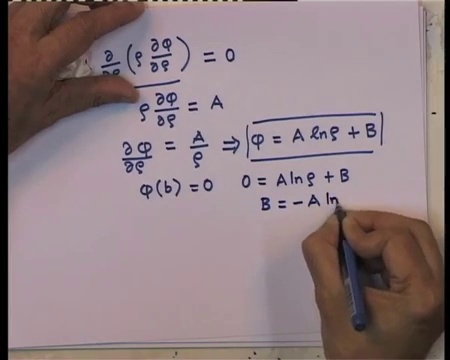 ∂/∂ρ (ρ ∂φ/∂ρ) = 0
ρ ∂φ/∂ρ = A
∂φ/∂ρ = A/ρ ⇒ φ = A lnρ + B
φ(b) = 0 0 = A lnρ + B
B = -A ln